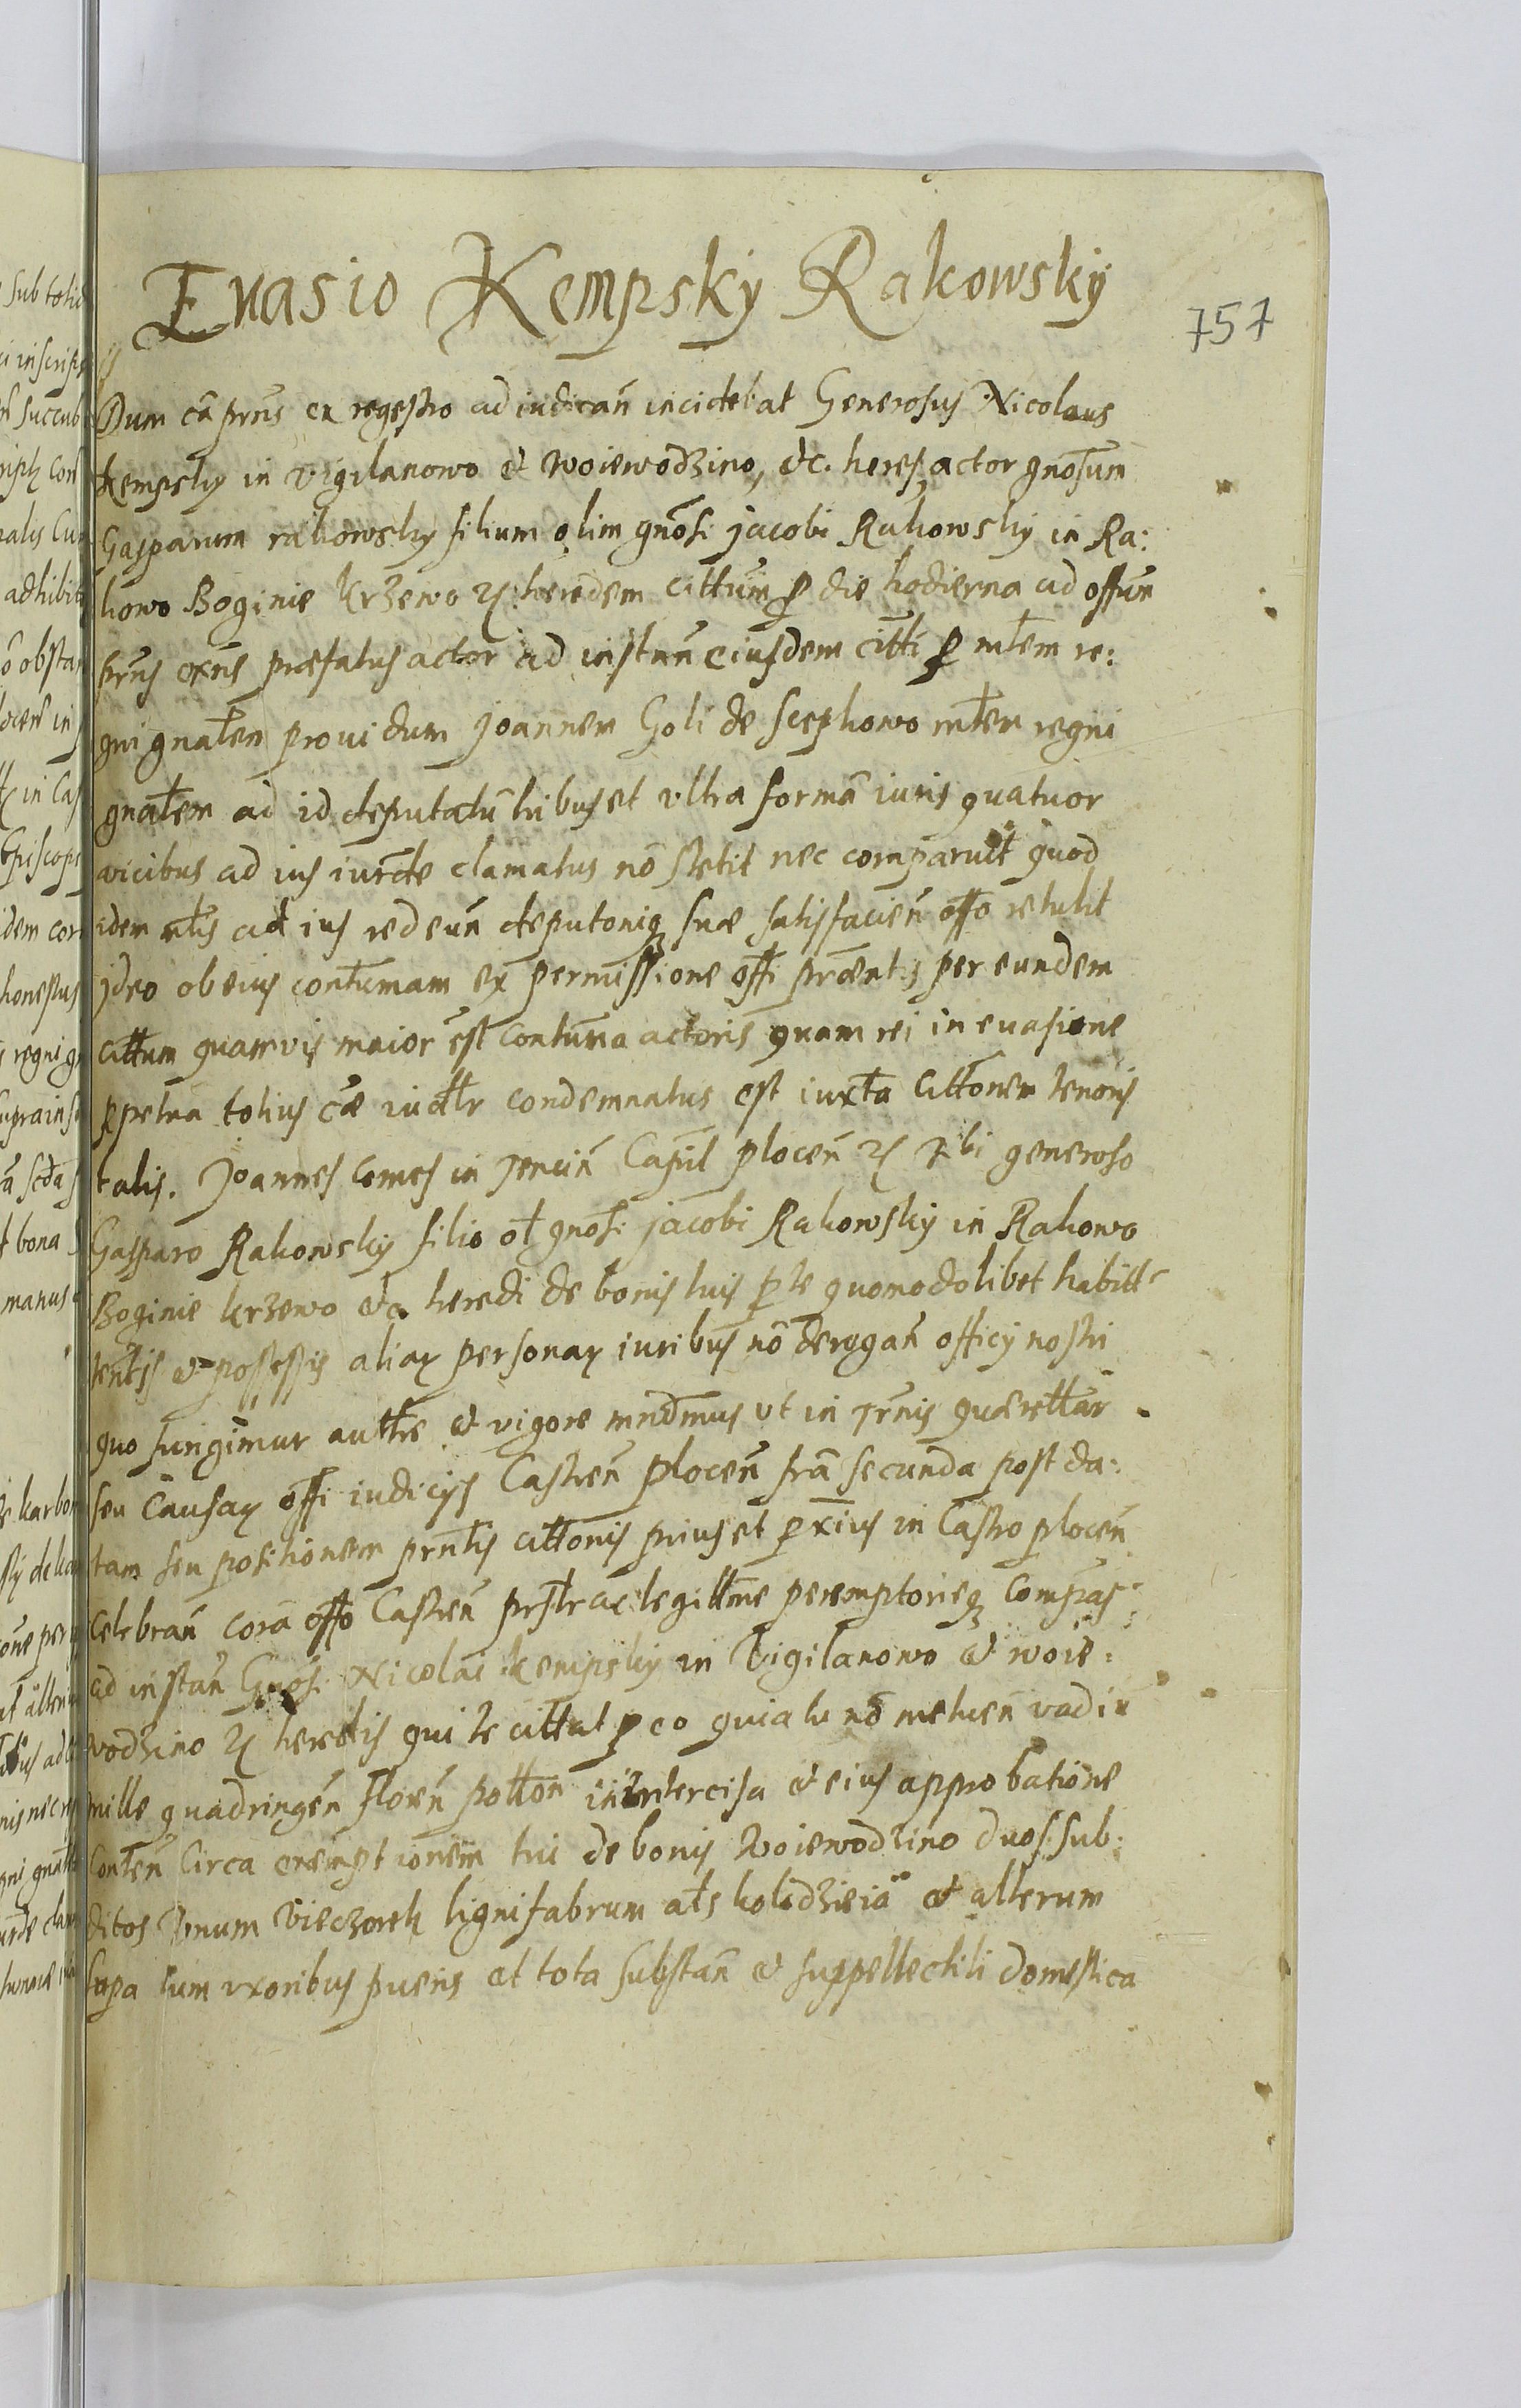 Evasio Kempsky Rakowsky
757
Dum cā prns̄ ex regestro ad iudican̄ incidebat Generosus Nicolaus
Kempsky in Vigilanowo et Woiewodzino, etc. heres actor gnosum
Gasparum rakowsky filium olim gnōsi jacobi Rakowsky in Ra:
kowo Boginie krzewo etc heredem cittum p die hodierna ad offum
prns̄ exns̄ præfatus actor ad instan̄ eiusdem citti p mtem re:
gni gnatem providum Joannem Goli de Scephowo mtem regni
gnatem ad id deputatū tribus et ultra formā iuris quatuor
vicibus ad ius iurde clamatus nō stetit nec comparuit quod
idem mtis ad ius redeun̄ deputoniq suæ satisfacien̄ offo retulit
ideo ob eius contumam ex permissione offi præntis per eundem
cittum quamvis maior est contuma actoris quam rei in evasione
ppetua totius cæ iudtr condemnatus est iuxta cittonem tenoris
talis. Joannes comes in Tencin̄ Capit plocen̄ etc Tibi generoso
Gasparo Rakowsky filio ot gnosi jacobi Rakowsky in Rakowo
Boginie krzewo etc heredi de bonis tuis p te quomodolibet habitt
tentis et possessis aliar personar iuribus nō derogan̄ officij nostri
quo fungimur autte et vigore mndmus ut in Trnis quærettar
seu causar offi iudicijs Castren̄ plocen̄ fra secunda post da:
tam seu positionem prntis cittonis prius et pxius in Castro plocen̄
celebran̄ corā offo Castren̄ prstr ac legittime peremptorieq compas
ad instan̄ Gnosi Nicolai kempsky in Vigilanowo et woie:
wodzino etc heredis qui te cittat p eo quia tu nō metuen̄ vadiū
mille quadringen̄ floren̄ potton in intercisa et eius approbatione
conten̄ circa exemptionem tui de bonis Woiewodzino duos sub:
ditos unum Vieczorek lignifabrum ats kolodzieia et alterum
supa cum uxoribus pueris et tota substan̄ et suppellectili domestica